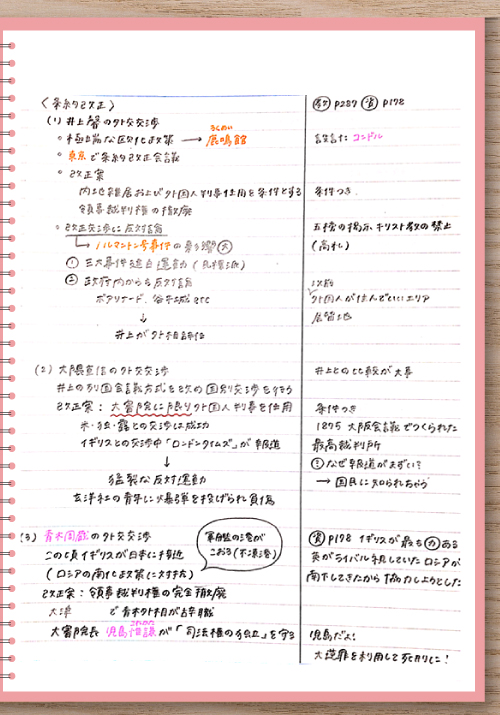 〈条約改正〉
㋖ P287 ㋛ P178
(1) 井上馨の外交交渉
・極端な欧化政策 → 鹿鳴館
ろくめいかん
設計 コンドル
・東京で条約改正会議
・改正案
内地雑居および外国人判事任用を条件とする
条件つき
領事裁判権の撤廃
・改正交渉に反対意見
五榜の掲示、キリスト教の禁止
(高札)
→ ノルマントン号事件の影響 大
① 三大事件建白運動(民権派)
② 政府内からも反対意見
以前
外国人が住んでいいエリア
ボアソナード、谷干城 etc
居留地
↓
井上が外相辞任
(2) 大隈重信の外交交渉
井上との比較が大事
井上の列国会議方式を改め国別交渉をする
改正案:大審院に限り外国人判事を任用
条件つき
米・独・露との交渉に成功
1875 大阪会議でつくられた
イギリスとの交渉中「ロンドンタイムズ」が報道
最高裁判所
! なぜ報道がまずい?
↓
→ 国民に知られちゃう
猛烈な反対運動
玄洋社の青年に爆弾を投げられ負傷
(3) 青木周蔵の外交交渉
軍艦の港が
こおる(不凍港)
P178 イギリスが最も力ある
このころイギリスが日本に接近
英がライバル視していたロシアが
(ロシアの南化政策に対抗)
南下してきたから協力しようとした
改正案:領事裁判権の完全撤廃
大津 で青木外相が辞職
大審院長 児島惟謙が「司法権の独立」を守る
これかた
児島だよ!
大逆罪を利用して死刑に!